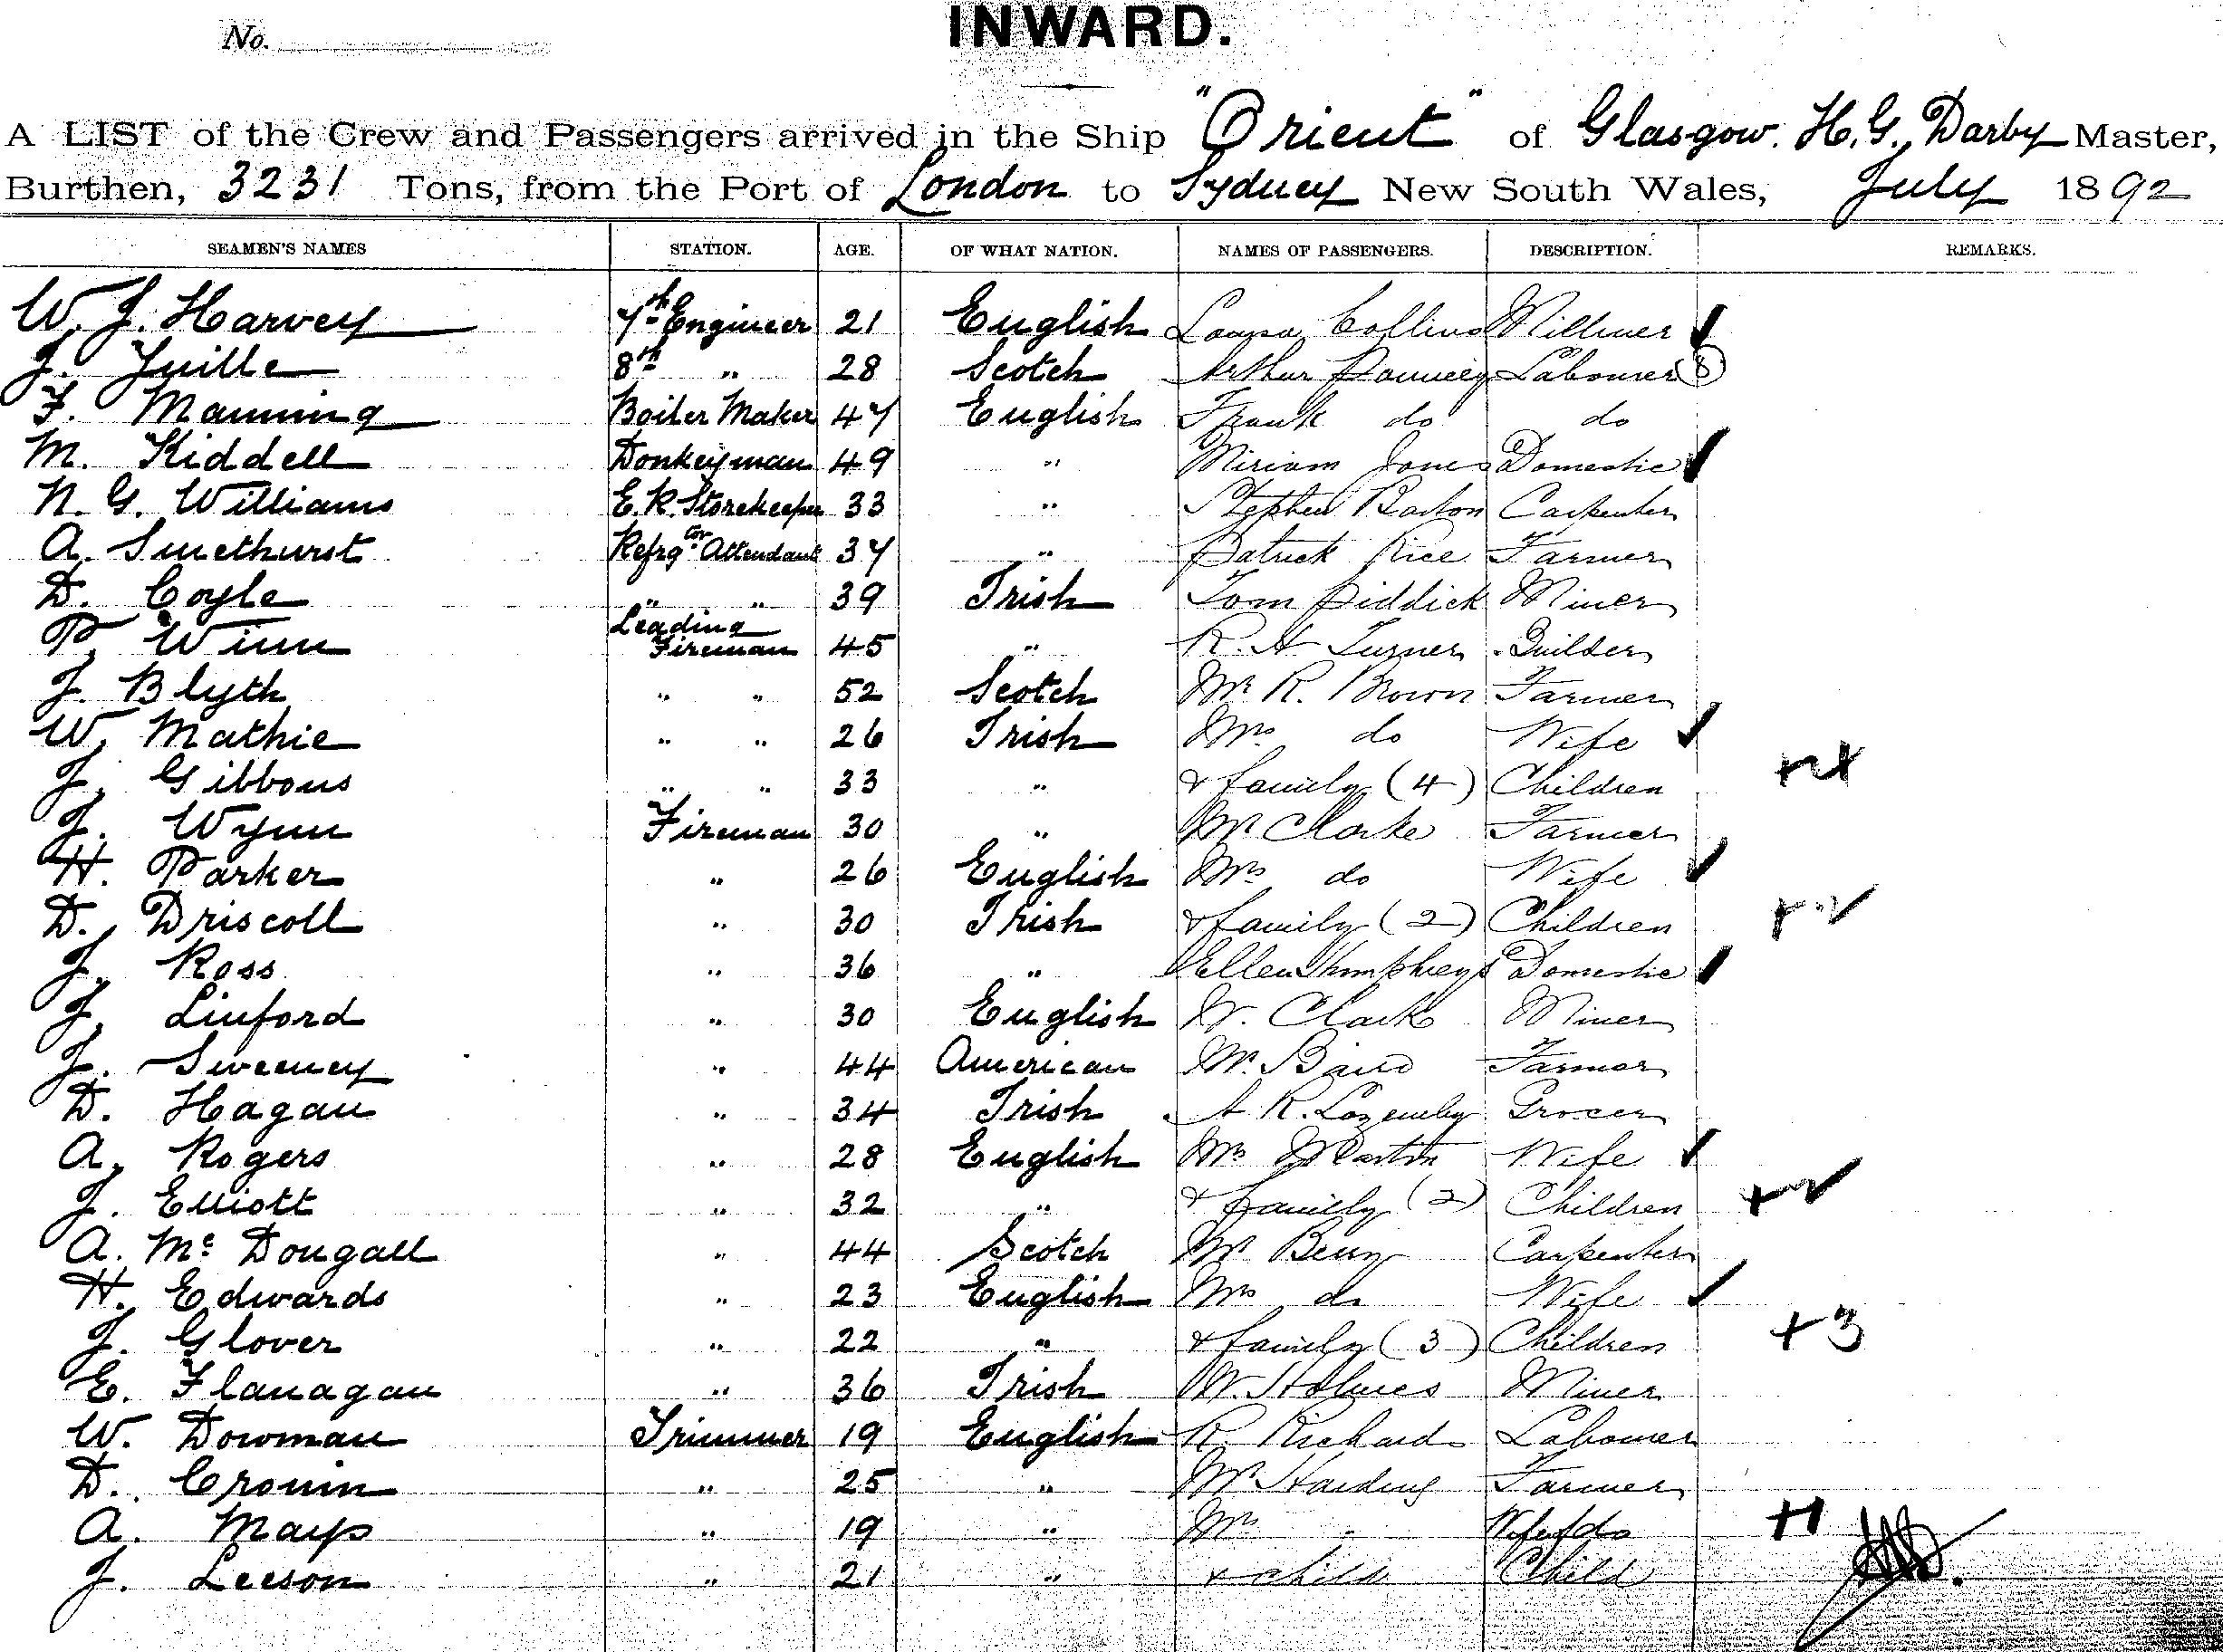 No.
INWARD.
A LIST of the Crew and Passengers arrived in the Ship "Orient" of Glasgow. H. G. Darby Master,
Burthen, 3231 Tons, from the Port of London to Sydney New South Wales, July 1892
SEAMEN'S NAMES STATION. AGE. OF WHAT NATION. NAMES OF PASSENGERS. DESCRIPTION. REMARKS.
W. J. Harvey 7th Engineer 21 English Louisa Collins Milliner
J. Yuille 8th " 28 Scotch Arthur Labourer 8
F. Manning Boiler Maker 47 English Frank do do
M. Kiddell Donkeyman 49 " Miriam Jones Domestic
N. G. Williams E. R. Storekeeper 33 " Stephen Barton Carpenter
A. Smethurst Refrgtor Attendant 37 " Patrick Rice Farmer
D. Coyle " " 39 Irish Tom Piddick Miner
P. Winn Leading Fireman 45 " R. H Turner Builder
J. Blyth " " 52 Scotch Mr R. Brown Farmer
W. Mathie " " 26 Irish Mrs do Wife
J. Gibbons " " 33 " & family (4) Children
J. Wynn Fireman 30 " Mr Clarke Farmer
H. Parker " 26 English Mrs do Wife
D. Driscoll " 30 Irish & family (2) Children
J. Ross " 36 " Ellen Humphreys Domestic
J. Linford " 30 English W. Clark Miner
J. Sweeney " 44 American W. Baird Farmer
D. Hagan " 34 Irish A R. Lazenby Grocer
A. Rogers " 28 English Mrs Martin Wife
J. Elliott " 32 " & family (2) Children +2
A. Mc Dougall " 44 Scotch Mr Carpenter
H. Edwards " 23 English Mrs do Wife
J. Glover " 22 " & family (3) Children +3
E. Flanagan " 36 Irish W. Holmes Miner
W. Dowman Trimmer 19 English R. Richards Labourer
D. Cronin " 25 " Mr Harding Farmer
A. Mays " 19 " Mrs Wife of do +1
J. Leeson " 21 " & child Child